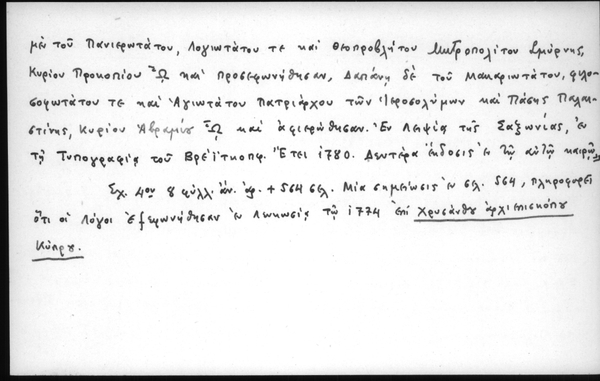 μὲν τοῦ Πανιερωτάτου, Λογιωτάτου τε καὶ Θεοπροβλήτου Μητροπολίτου Σμύρνης,
Κυρίου Προκοπίου ᾯ καὶ προσεφωνήθησαν, Δαπάνῃ δὲ τοῦ Μακαριωτάτου, φιλο-
σοφωτάτου τε καὶ Ἁγιωτάτου Πατριάρχου τῶν Ἱεροσολύμων καὶ Πάσης Παλαι-
στίνης, Κυρίου Ἀβραμίου ᾯ καὶ ἀφιερώθησαν. Ἐν Λειψίᾳ τῆς Σαξωνίας, ἐν
τῇ Τυπογραφίᾳ τοῦ Βρέϊτκοπφ. Ἔτει 1780. Δευτέρα ἔκδοσις ἐν τῷ αὐτῷ καιρῷ.
Σχ. 4ον 8 φύλλ. ἀν. ἀρ. + 564 σελ. Μία σημείωσις ἐν σελ. 564, πληροφορεῖ
ὅτι οἱ Λόγοι ἐξεφωνήθησαν ἐν Λευκωσίᾳ τῷ 1774 ἐπὶ Χρυσάνθου ἀρχιεπισκόπου
Κύπρου.